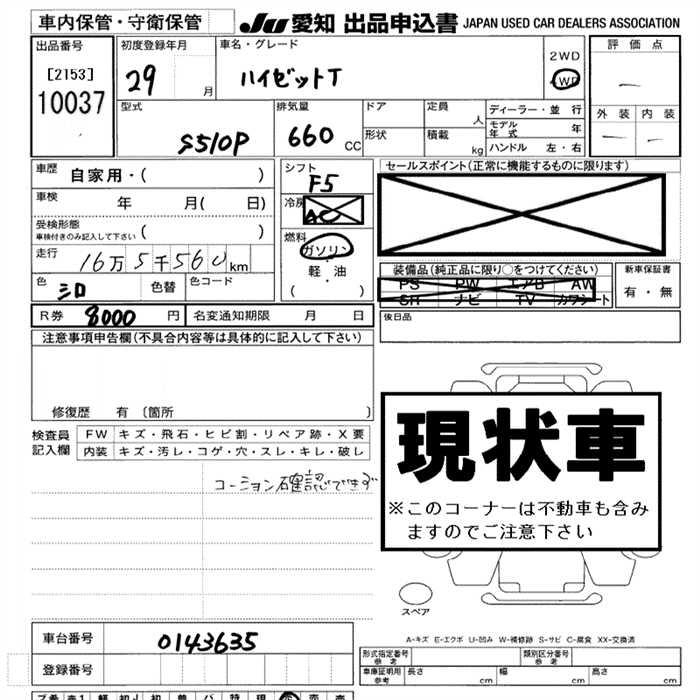 車内保管・守衛保管
JU 愛知 出品申込書 JAPAN USED CAR DEALERS ASSOCIATION
出品番号
[2153]
10037
初度登録年月
29 月
車名・グレード
ハイゼットT
2WD
4WD
評価点
—
外装 内装
— —
型式
S510P
排気量
660 CC
ドア
形状
定員
人
積載
kg
ディーラー・並行
モデル年式 年
ハンドル 左・右
車歴
自家用・( )
車検
年 月( 日)
受検形態
車検付きのみ記入して下さい ( )
走行
16万5千560km
色
シロ
色替
色コード
シフト
F5
冷房
AC
燃料
ガソリン
・
軽・油
( )
セールスポイント(正常に機能するものに限ります)
装備品(純正品に限り○をつけてください)
PS PW エアB AW
SR ナビ TV カワシート
新車保証書
有・無
R券 8000 円
名変通知期限 月 日
後日品
注意事項申告欄(不具合内容等は具体的に記入して下さい)
修復歴 有 〔箇所 〕
検査員
記入欄
FW キズ・飛石・ヒビ割・リペア跡・X要
内装 キズ・汚レ・コゲ・穴・スレ・キレ・破レ
コーション確認できず
現状車
※このコーナーは不動車も含み
ますのでご注意下さい
スペア
A-キズ E-エクボ U-凹み W-補修跡 S-サビ C-腐食 XX-交換済
車台番号
0143635
登録番号
形式指定番号
参考
類別区分番号
参考
車庫証明用
参考
長さ cm
幅 cm
高さ cm